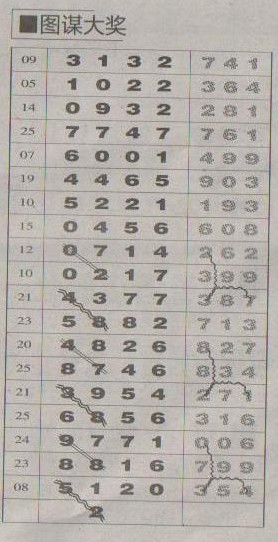 ■图谋大奖
09 3 1 3 2 7 4 1
05 1 0 2 2 3 6 4
14 0 9 3 2 2 8 1
25 7 7 4 7 7 6 1
07 6 0 0 1 4 9 9
19 4 4 6 5 9 0 3
10 5 2 2 1 1 9 3
15 0 4 5 6 6 0 8
12 0 7 1 4 2 6 2
10 0 2 1 7 3 9 9
21 4 3 7 7 3 8 7
23 5 8 8 2 7 1 3
20 4 8 2 6 8 2 7
25 8 7 4 6 8 3 4
21 3 9 5 4 2 7 1
25 6 8 5 6 3 1 6
24 9 7 7 1 0 0 6
23 8 8 1 6 7 9 9
08 5 1 2 0 3 5 4
2